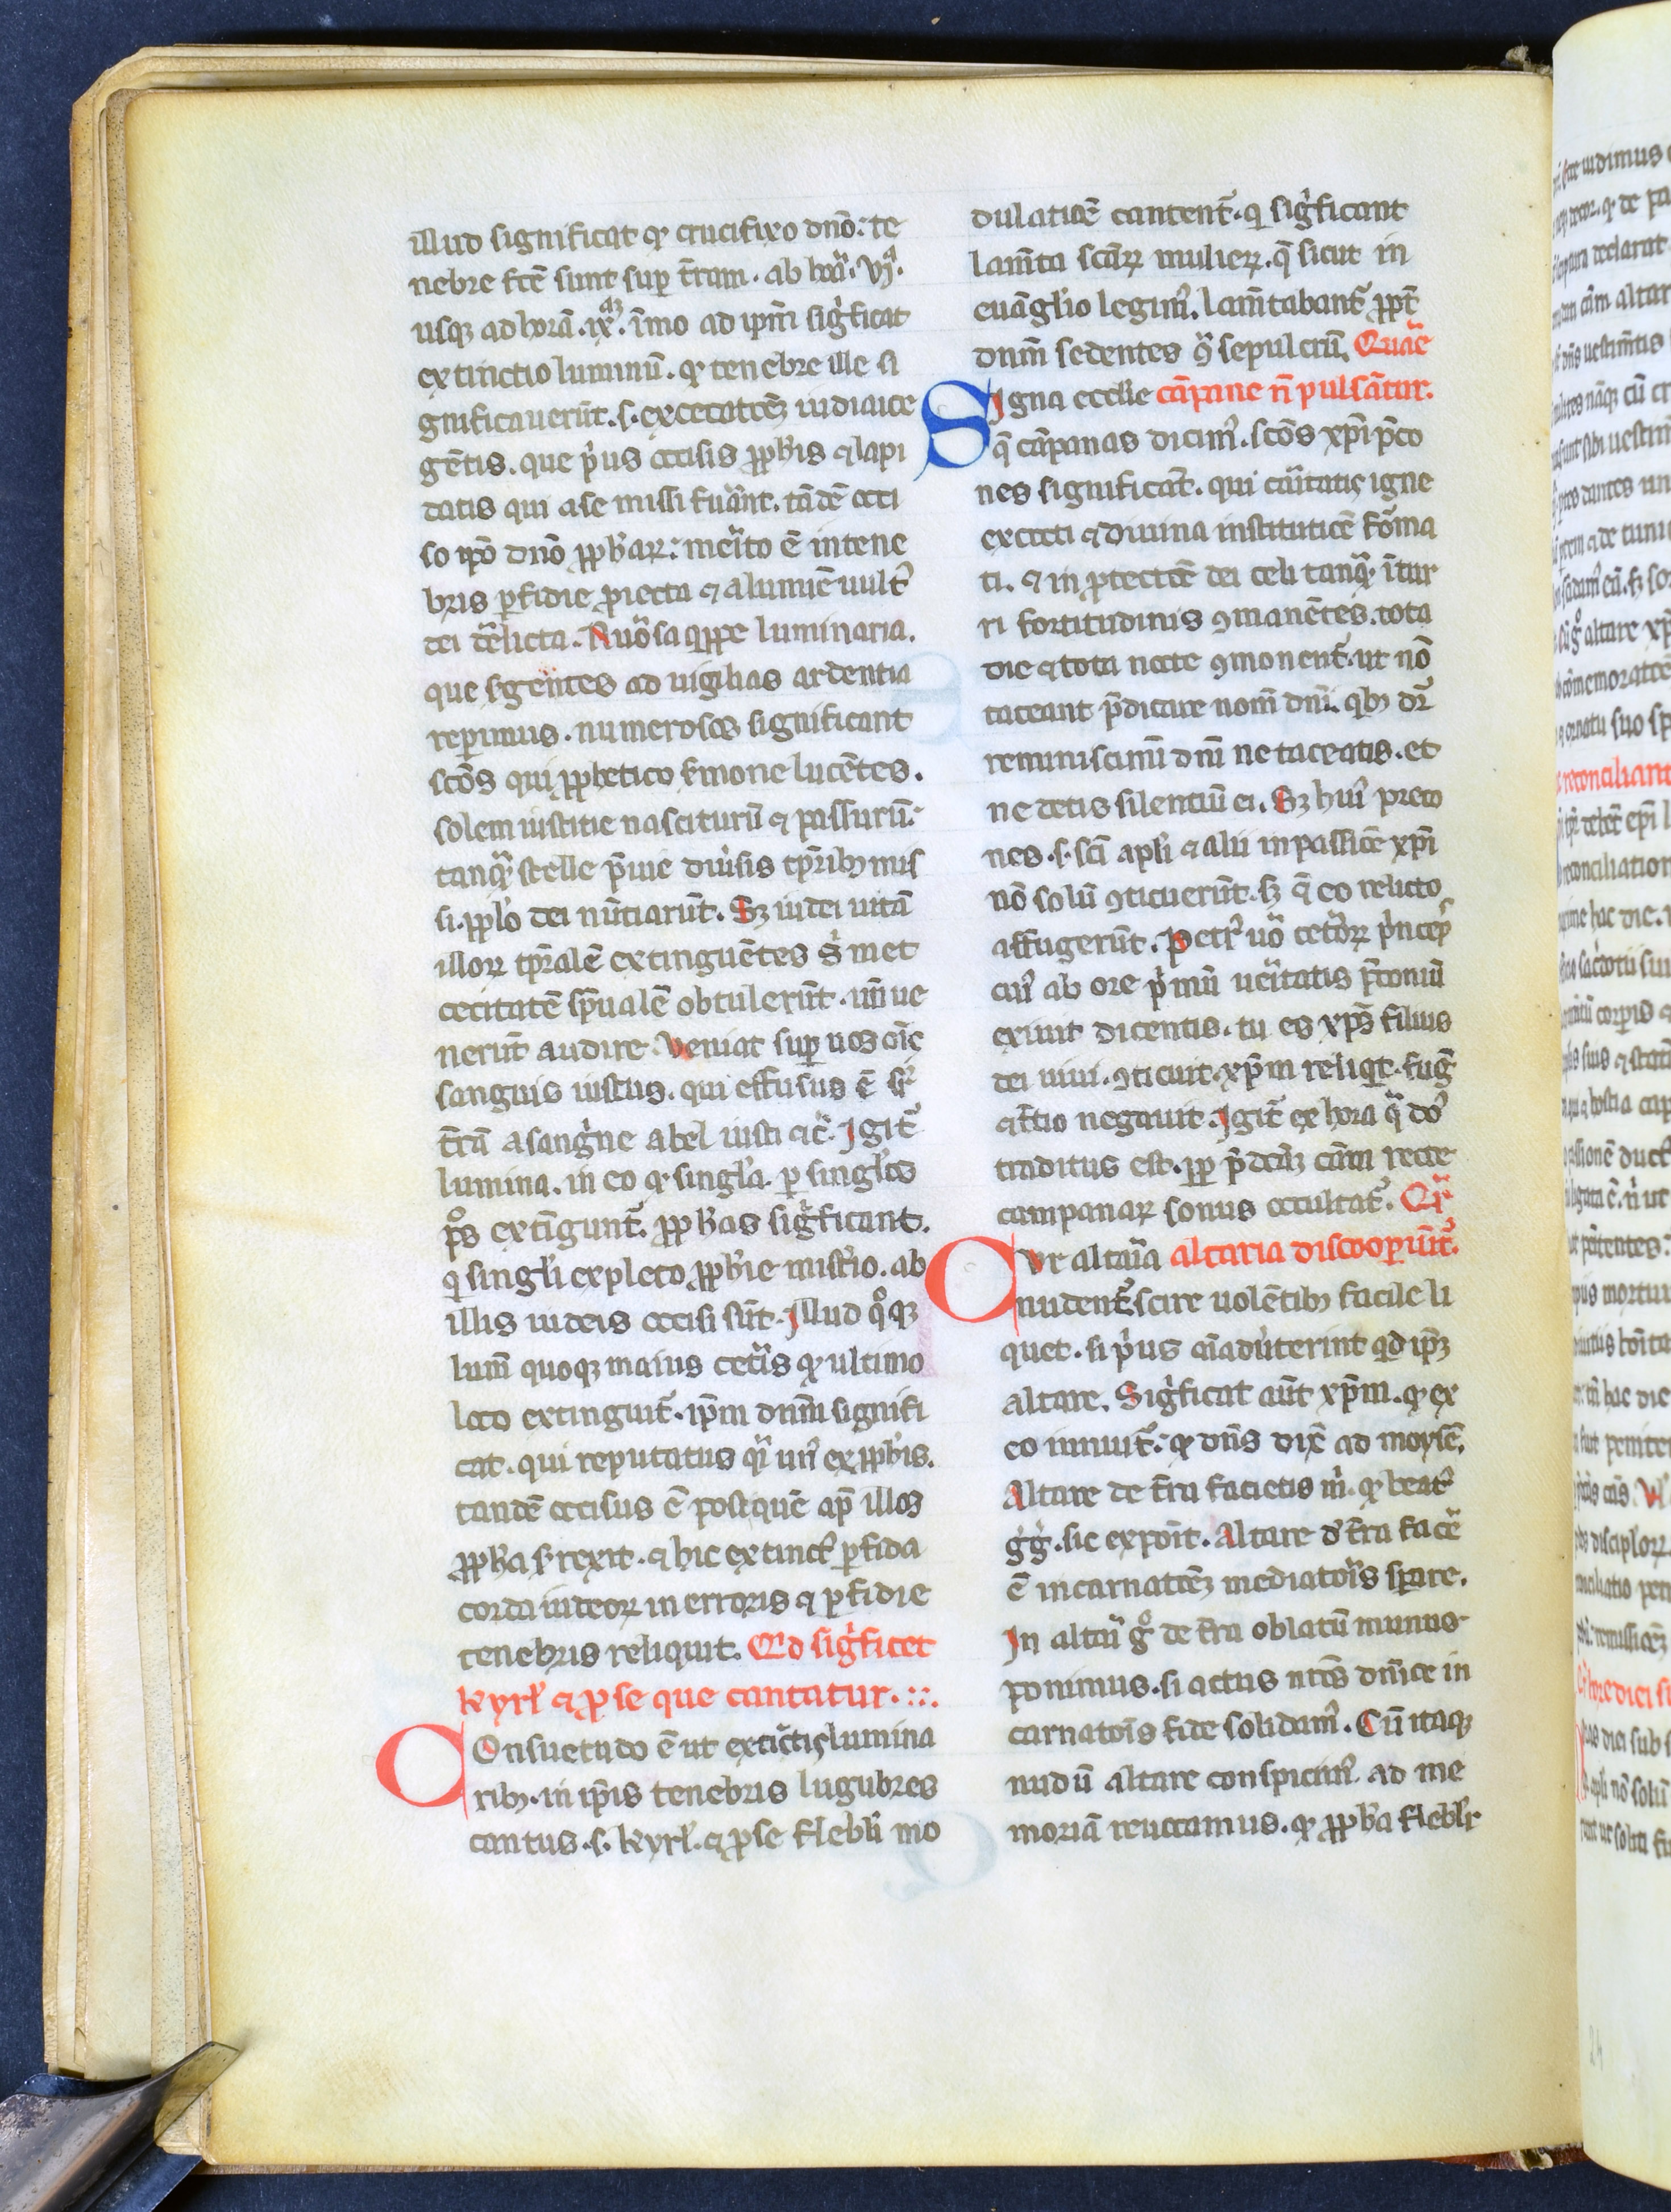 illud significat qr crucifixo dnō: te
nebre fcē sunt sup t̄ram. ab hoꝝa. vj.ª
usqꝫ ad horā. ix. īmo ad ip̄m sig̍ficat
extinctio luminū. qr tenebre ille si
gnificauerūt. s. excecatōꝫ iudaice
gētis. que p̍us occisis ꝓph̄is ⁊ lapi
datis qui a se missi fuānt. tādē occi
so ip̄o dnō ꝓph̄aꝝ: meīto ē in tene
bris ꝑfidie ꝓiecta ⁊ a lumīe uult᾽
dei dēlicta. Nuōsa q̍ppe luminaria.
que ad uigilias ardentia
reperimus. numerosos significant
scōs qui ꝓphetico s̄mone lucētes.
solem iustitie nasciturū ⁊ passurū:
tanqͣ stelle p̄uie diu̍sis tp̄ribꝫ mis
si. ꝓplo dei nūtiarūt. Sꝫ iudei uitā
illoꝝ tp̄ralē extinguētes s̍ met
cecitatē sp̄ualē obtulerūt. ue
nerūt audire. Veniat suꝑ uos oīs
sanguis iustus. qui effusus ē sr̄
t̄rā a sang̍ne abel iusti ⁊c̄. Igit᷑
lumina. in eo qr singl̄a. ꝑ singl̄os
p̊s extīgunt᷑. ꝓph̄as sig̍ficant.
q̍ singl̄i expleto ꝓph̄ie mist̄io. ab
illis iudeis occisi sūt. Illud q̊qꝫ
lum̄ quoqꝫ maius cet̄is qr ultimo
loco extinguit᷑. ip̄m dnm̄ signifi
cat. qui reputatus qͣi un᾽ ex ꝓph̄is.
tandē occisus ē postquē ap̄ illos
ꝓph̄a s̄rexit. ⁊ hic extinct᾽ ꝑfida
corda iudeoꝝ in erroris ⁊ ꝑfidie
tenebris reliquit. Qd sig̍ficet
kyrl᾽ ⁊ ꝓse que cantatur. ::.
COnsuetudo ē ut extīctis lumina
ribꝫ. in ip̄is tenebris lugubres
cantus. s. kyrl᾽. ⁊ ꝓse flebl̄i mo
dulatiōe cantent᷑. q̍ sig̍ficant
lam̄ta sc̄aꝝ mulieꝝ. q̄ sicut in
euāglio legim᾽. lam̄tabant᷑ ꝓpt̄
dnm̄ sedentes 9̊ sepulcrū. Quāe
SIgna ecclīe cāpane n̄ pulsātur.
q̄ cāpanas dicim᾽. scōs xp̄i p̄co
nes significāt. qui cāitatis igne
excocti ⁊ diuina institutiōe fōma
ti. ⁊ in ꝓtectōe dei celi tanqͣ ītur
ri fortitudinis 9manētes. tota
die ⁊ tota nocte 9monent᷑. ut nō
taceant p̄dicare nom̄ dnī. q̍bꝫ dr̄
reminiscimī dnī ne taceatis. et
ne detis silentiū ei. Sꝫ hui᾽ preco
nes. s. scī apl̄i ⁊ alii in passiōe xp̄i
nō solū 9ticuerūt. sꝫ ⁊ eo relicto
affugerūt. Petr᾽ uō cet̄oꝝ p̍nceps
cui᾽ ab ore p̍mū ueītatis p̄coniū
exiuit dicentis. tu es xp̄s filius
dei uiui. 9ticuit. xp̄m reliq̍t. fug̍
⁊ t̍tio negauit. Igit᷑ ex hora qͣ do᾽
traditus est. ꝓp p̄dcāꝫ cām recte
campanaꝝ sonus occultat᷑. Qͬ
CVr altāia altaria discooꝑiūt᷑.
nudent᷑ scire uolētibꝫ facile li
quet. si p̍us aīadu̍terint qd ip̄ꝫ
altare. Sig̍ficat aūt xp̄m. qr ex
eo īnuit᷑. qr dn̄s dix̄ ad moysē.
Altare de t̄ra facietis m̍. qr beat᾽
g̍g̍. sic expoīt. Altare d᾽ t̄ra facē
ē incarnatōꝫ mediatōis sꝑare.
In altāi g̊ de t̄ra oblatū munus
ponimus. si actus nr̄os dn̄ice in
carnatōis fide solidam᾽. Cū itaqꝫ
nudū altare conspicim᾽ ad me
moriā reuocamus. qr ꝓph̄a flebl̄r